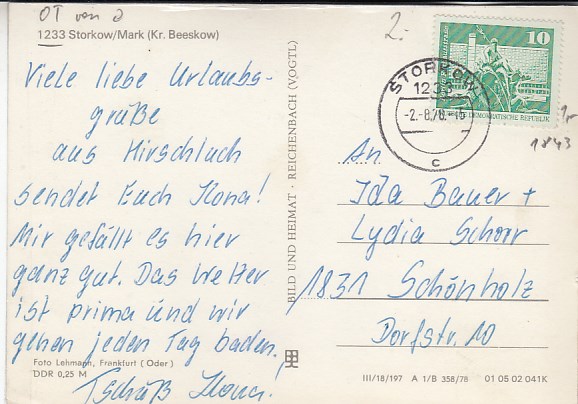 OT von 2
1233 Storkow/Mark (Kr. Beeskow)
Viele liebe Urlaubs-
grüße
aus Hirschluch
sendet Euch Ilona!
Mir gefällt es hier
ganz gut. Das Wetter
ist prima und wir
gehen jeden Tag baden.
Tschüß Ilona!
Foto Lehmann, Frankfurt (Oder)
DDR 0,25 M
BILD UND HEIMAT · REICHENBACH (VOGTL)
2.-
10
DEMOKRATISCHE REPUBLIK
STORKOW
1233
-2.-8.78.-16
c
1843
An
Ida Bauer +
Lydia Schorr
1831 Schönholz
Dorfstr. 10
III/18/197 A 1/B 358/78 01 05 02 041K